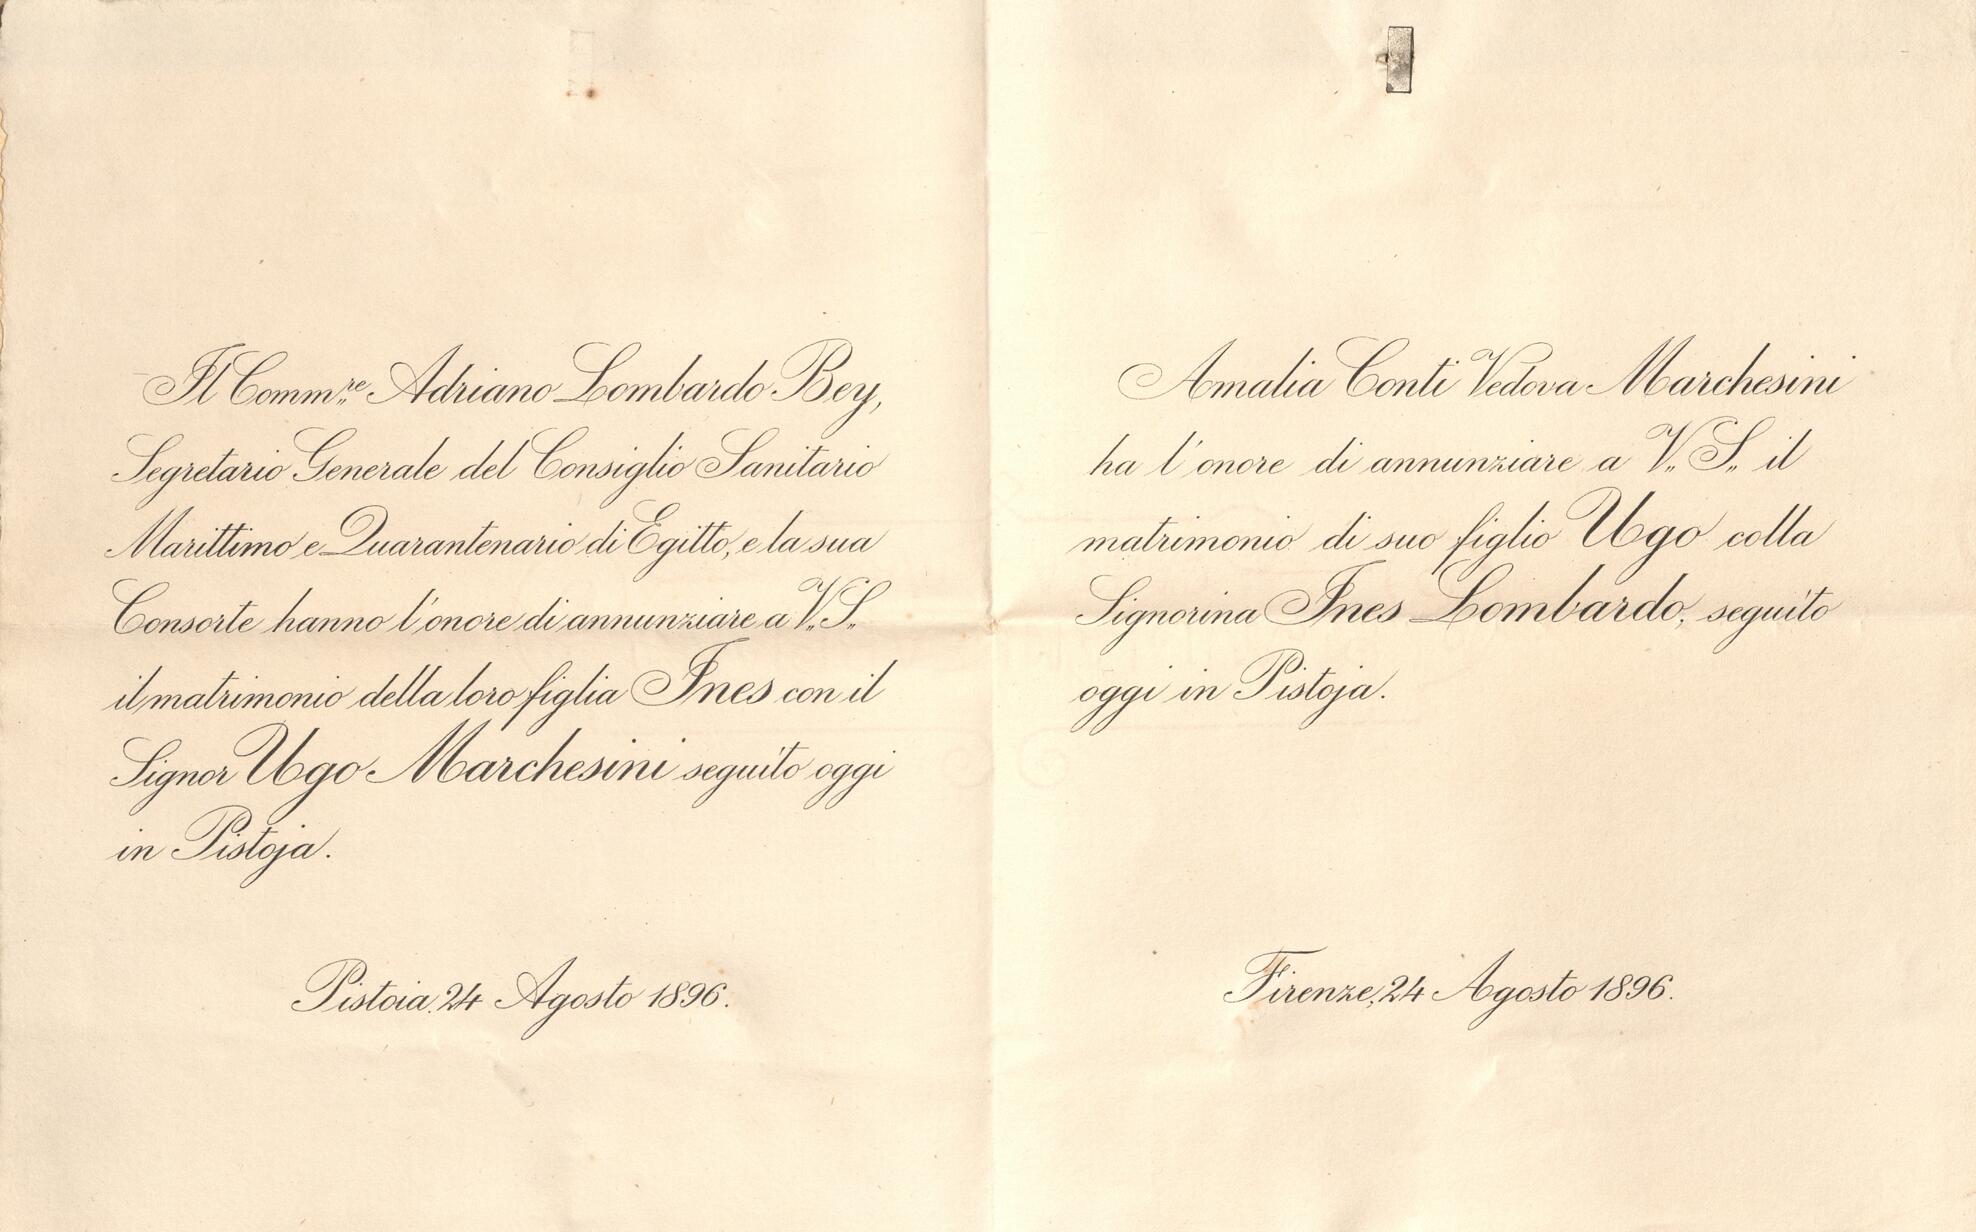 Il Comm.re Adriano Lombardo Bey,
Segretario Generale del Consiglio Sanitario
Marittimo e Quarantenario di Egitto, e la sua
Consorte hanno l'onore di annunziare a V. S.
il matrimonio della loro figlia Ines con il
Signor Ugo Marchesini seguito oggi
in Pistoja.
Pistoia, 24 Agosto 1896.
Amalia Conti Vedova Marchesini
ha l'onore di annunziare a V. S. il
matrimonio di suo figlio Ugo colla
Signorina Ines Lombardo, seguito
oggi in Pistoja.
Firenze, 24 Agosto 1896.